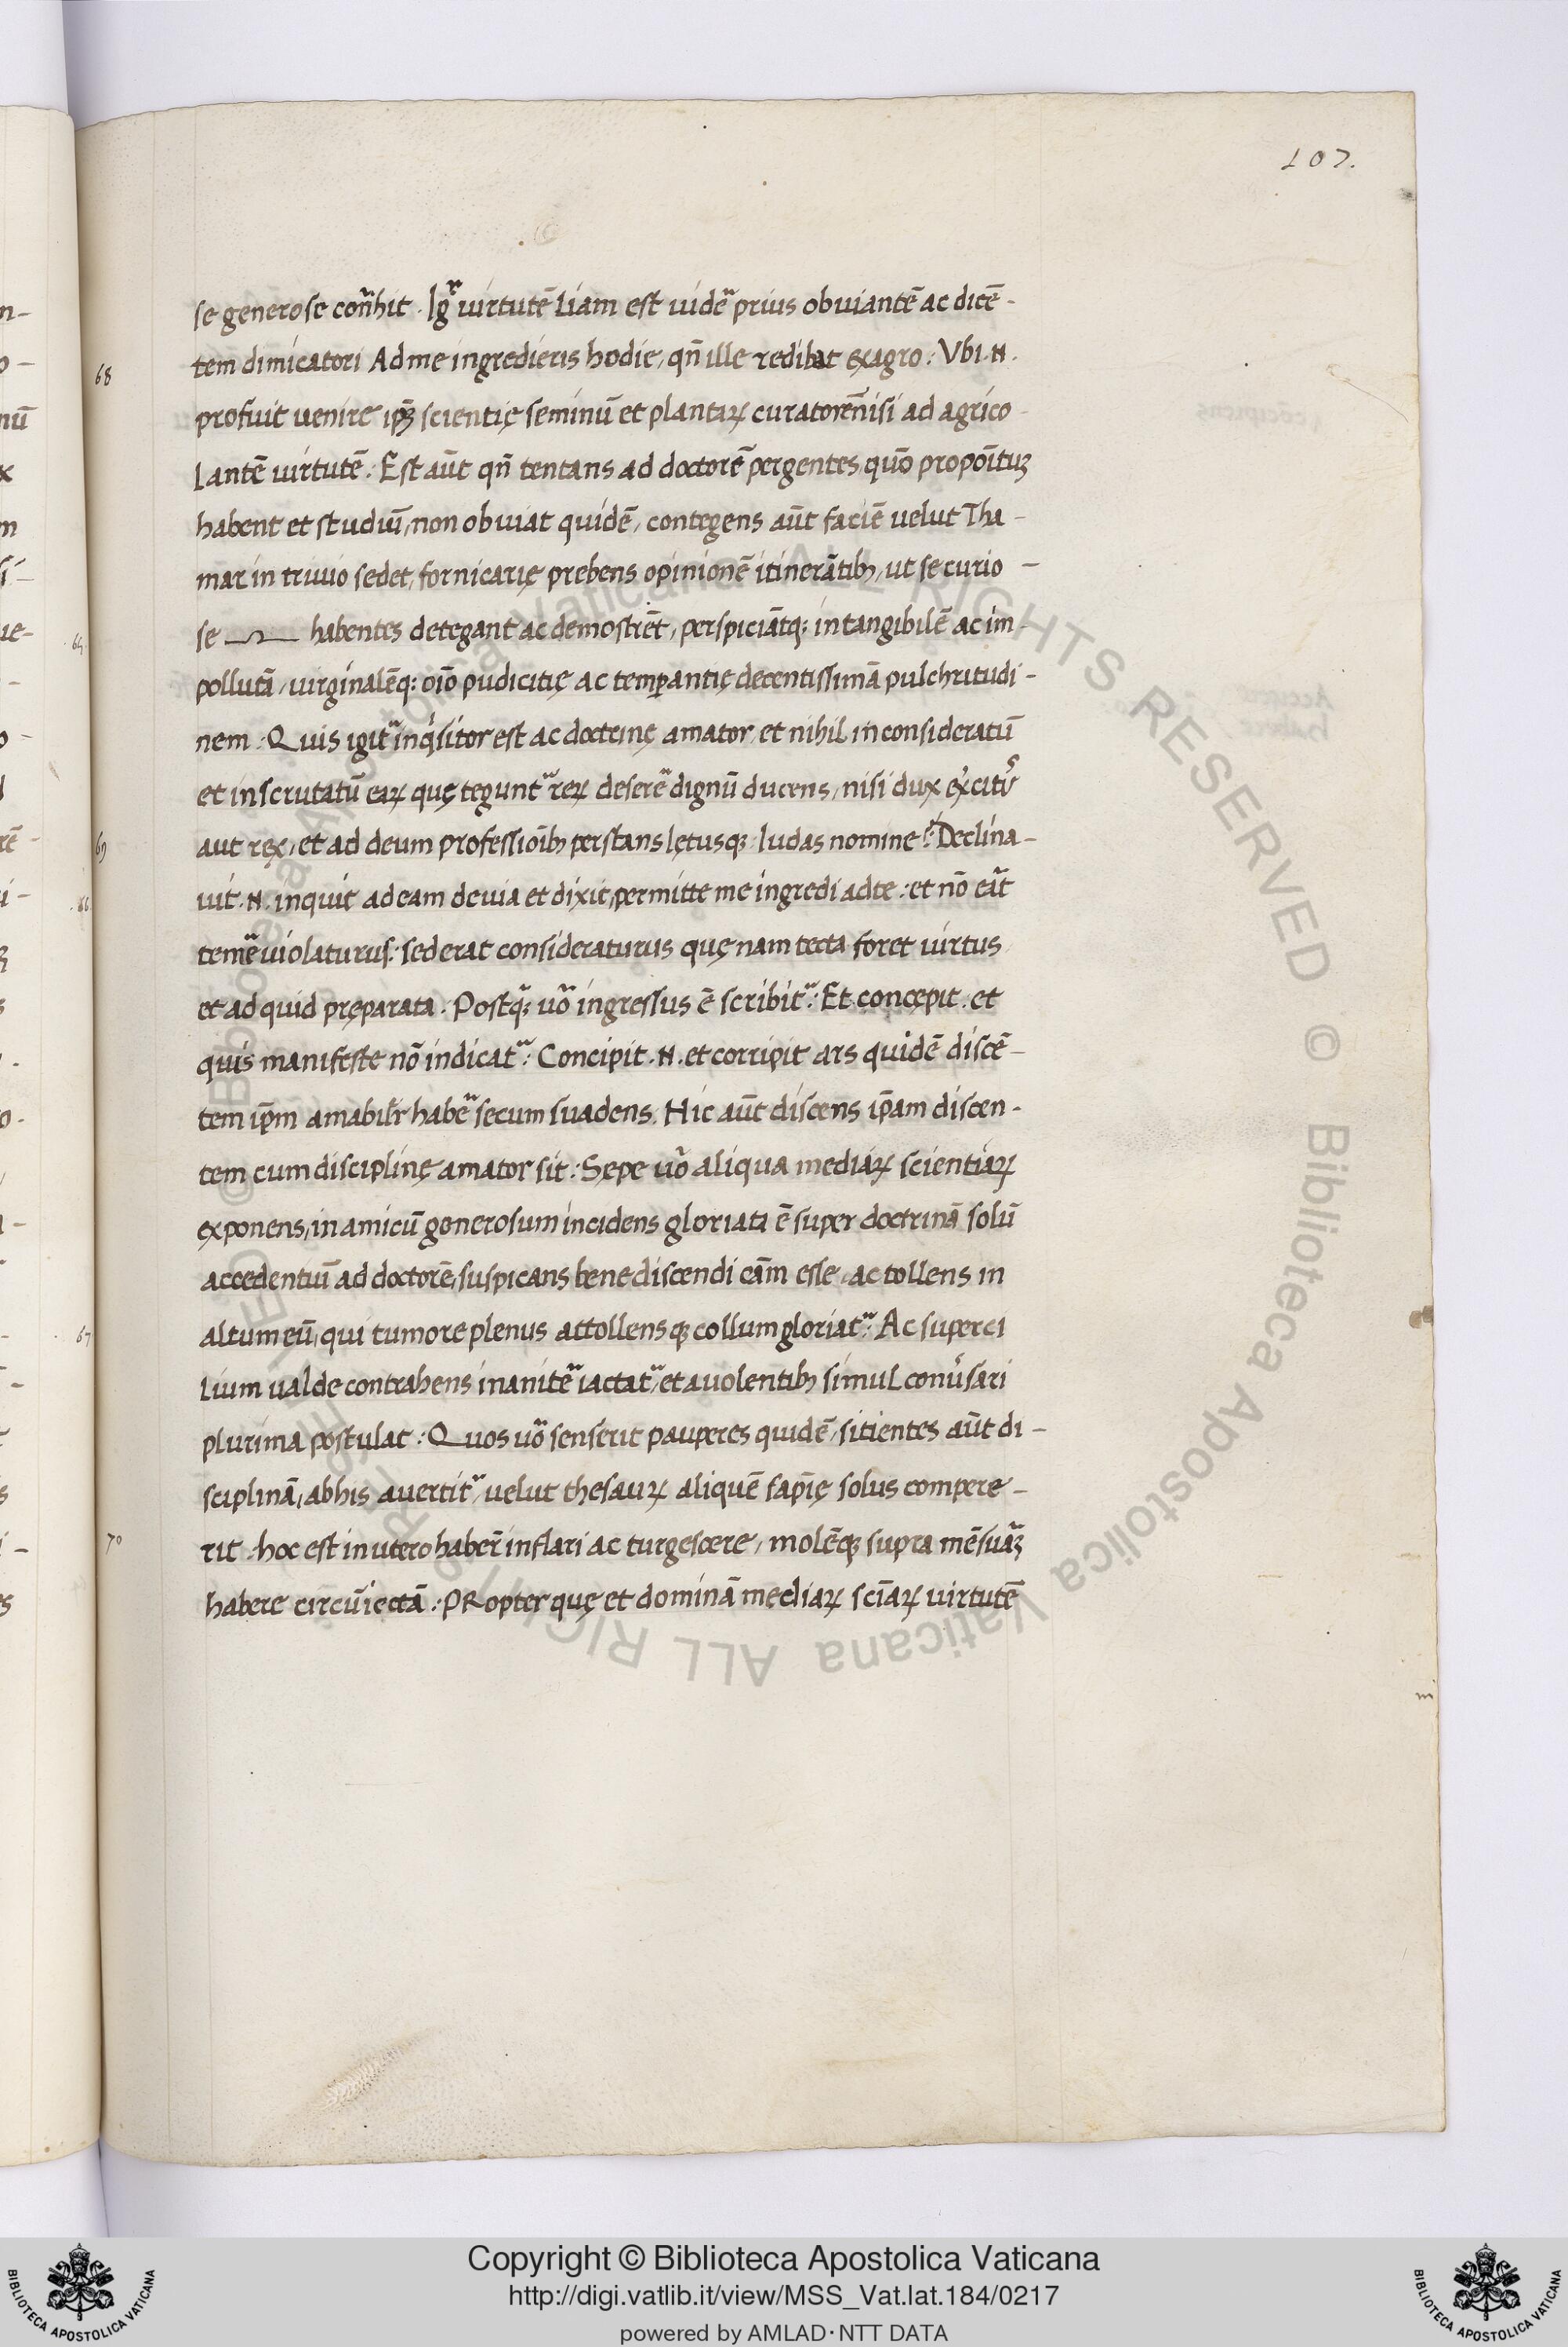 107.
se generose contrahit . Igr̄ uirtutē Liam est uidẽ prius obuiantē ac dicē-
68
tem dimicatori Ad me ingredieris hodie, qn̄ ille redibat ex agro : Vbi .N.
profuit uenire ipꝫ scientię seminū et plantaꝝ curatorē nisi ad agrico-
lantē uirtutē : Est aūt qn̄ tentans ad doctorē pergentes quō propōitꝫ
habent et studiū, non obuiat quidē, contegens aūt faciē uelut Tha-
mar in triuio sedet, fornicarię prebens opinionē itinerātibꝫ, ut se curio-
se habentes detegant ac demostrēt, perspiciātq; intangibilē ac im-
pollutā, uirginalēq; oīo pudicitię ac temperantię decentissimā pulchritudi-
nem . Quis igit̃ inqͥsitor est ac doctrinę amator, et nihil inconsideratū
et inscrutatū eaꝝ quę tegunt̃ reꝝ deserẽ dignū ducens, nisi dux exͥcitꝰ
69
aut rex, et ad deum professiōibꝫ perstans lętusqꝫ Iudas nomine : Declina-
uit .N. inquit ad eam de uia et dixit, permitte me ingredi ad te : et nō eāt
temẽ uiolaturus : sed erat consideraturus quęnam tecta foret uirtus
et ad quid pręparata . Postqꝫ uõ ingressus ē scribit̃ : Et concępit . et
quis manifeste nō indicat̃ : Concipit .N. et corripit ars quidē discē-
tem ip̄m amabilr̄ habẽ secum suadens . Hic aūt discens ip̄am discen-
tem cum disciplinę amator sit : Sępe uō aliqua mediaꝝ scientiaꝝ
exponens, in amicū generosum incidens gloriata ē super doctrinā solū
accedentiū ad doctorē, suspicans bene discendi eām esse, ac tollens in
67
altum eū, qui tumore plenus attollensqꝫ collum gloriat̃ : Ac superci
lium ualde contrahens inanitẽ iactat̃, et a uolentibꝫ simul conuͥsari
plurima postulat : Quos uõ senserit pauperes quidē, sitientes aūt di-
sciplinā, ab his auertit̃, uelut thesauꝝ aliquē sapīę solus compere-
70
rit . hoc est in utero haber̄ inflari ac turgescere, molēqꝫ supra mēsuāꝫ
habere circūiectā : PRopter quę et dominā mediaꝝ sciāꝝ uirtutē
Copyright © Biblioteca Apostolica Vaticana
http://digi.vatlib.it/view/MSS_Vat.lat.184/0217
powered by AMLAD·NTT DATA